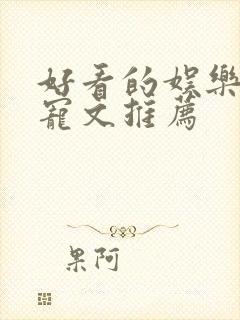 好看的娛樂
寵文推薦
果阿